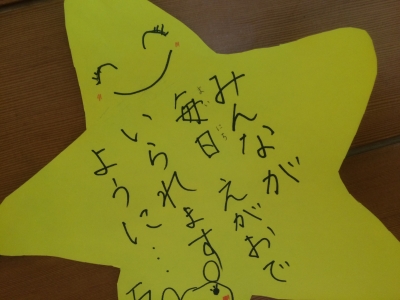 みんなが
毎日 えがおで
いられます
ように…